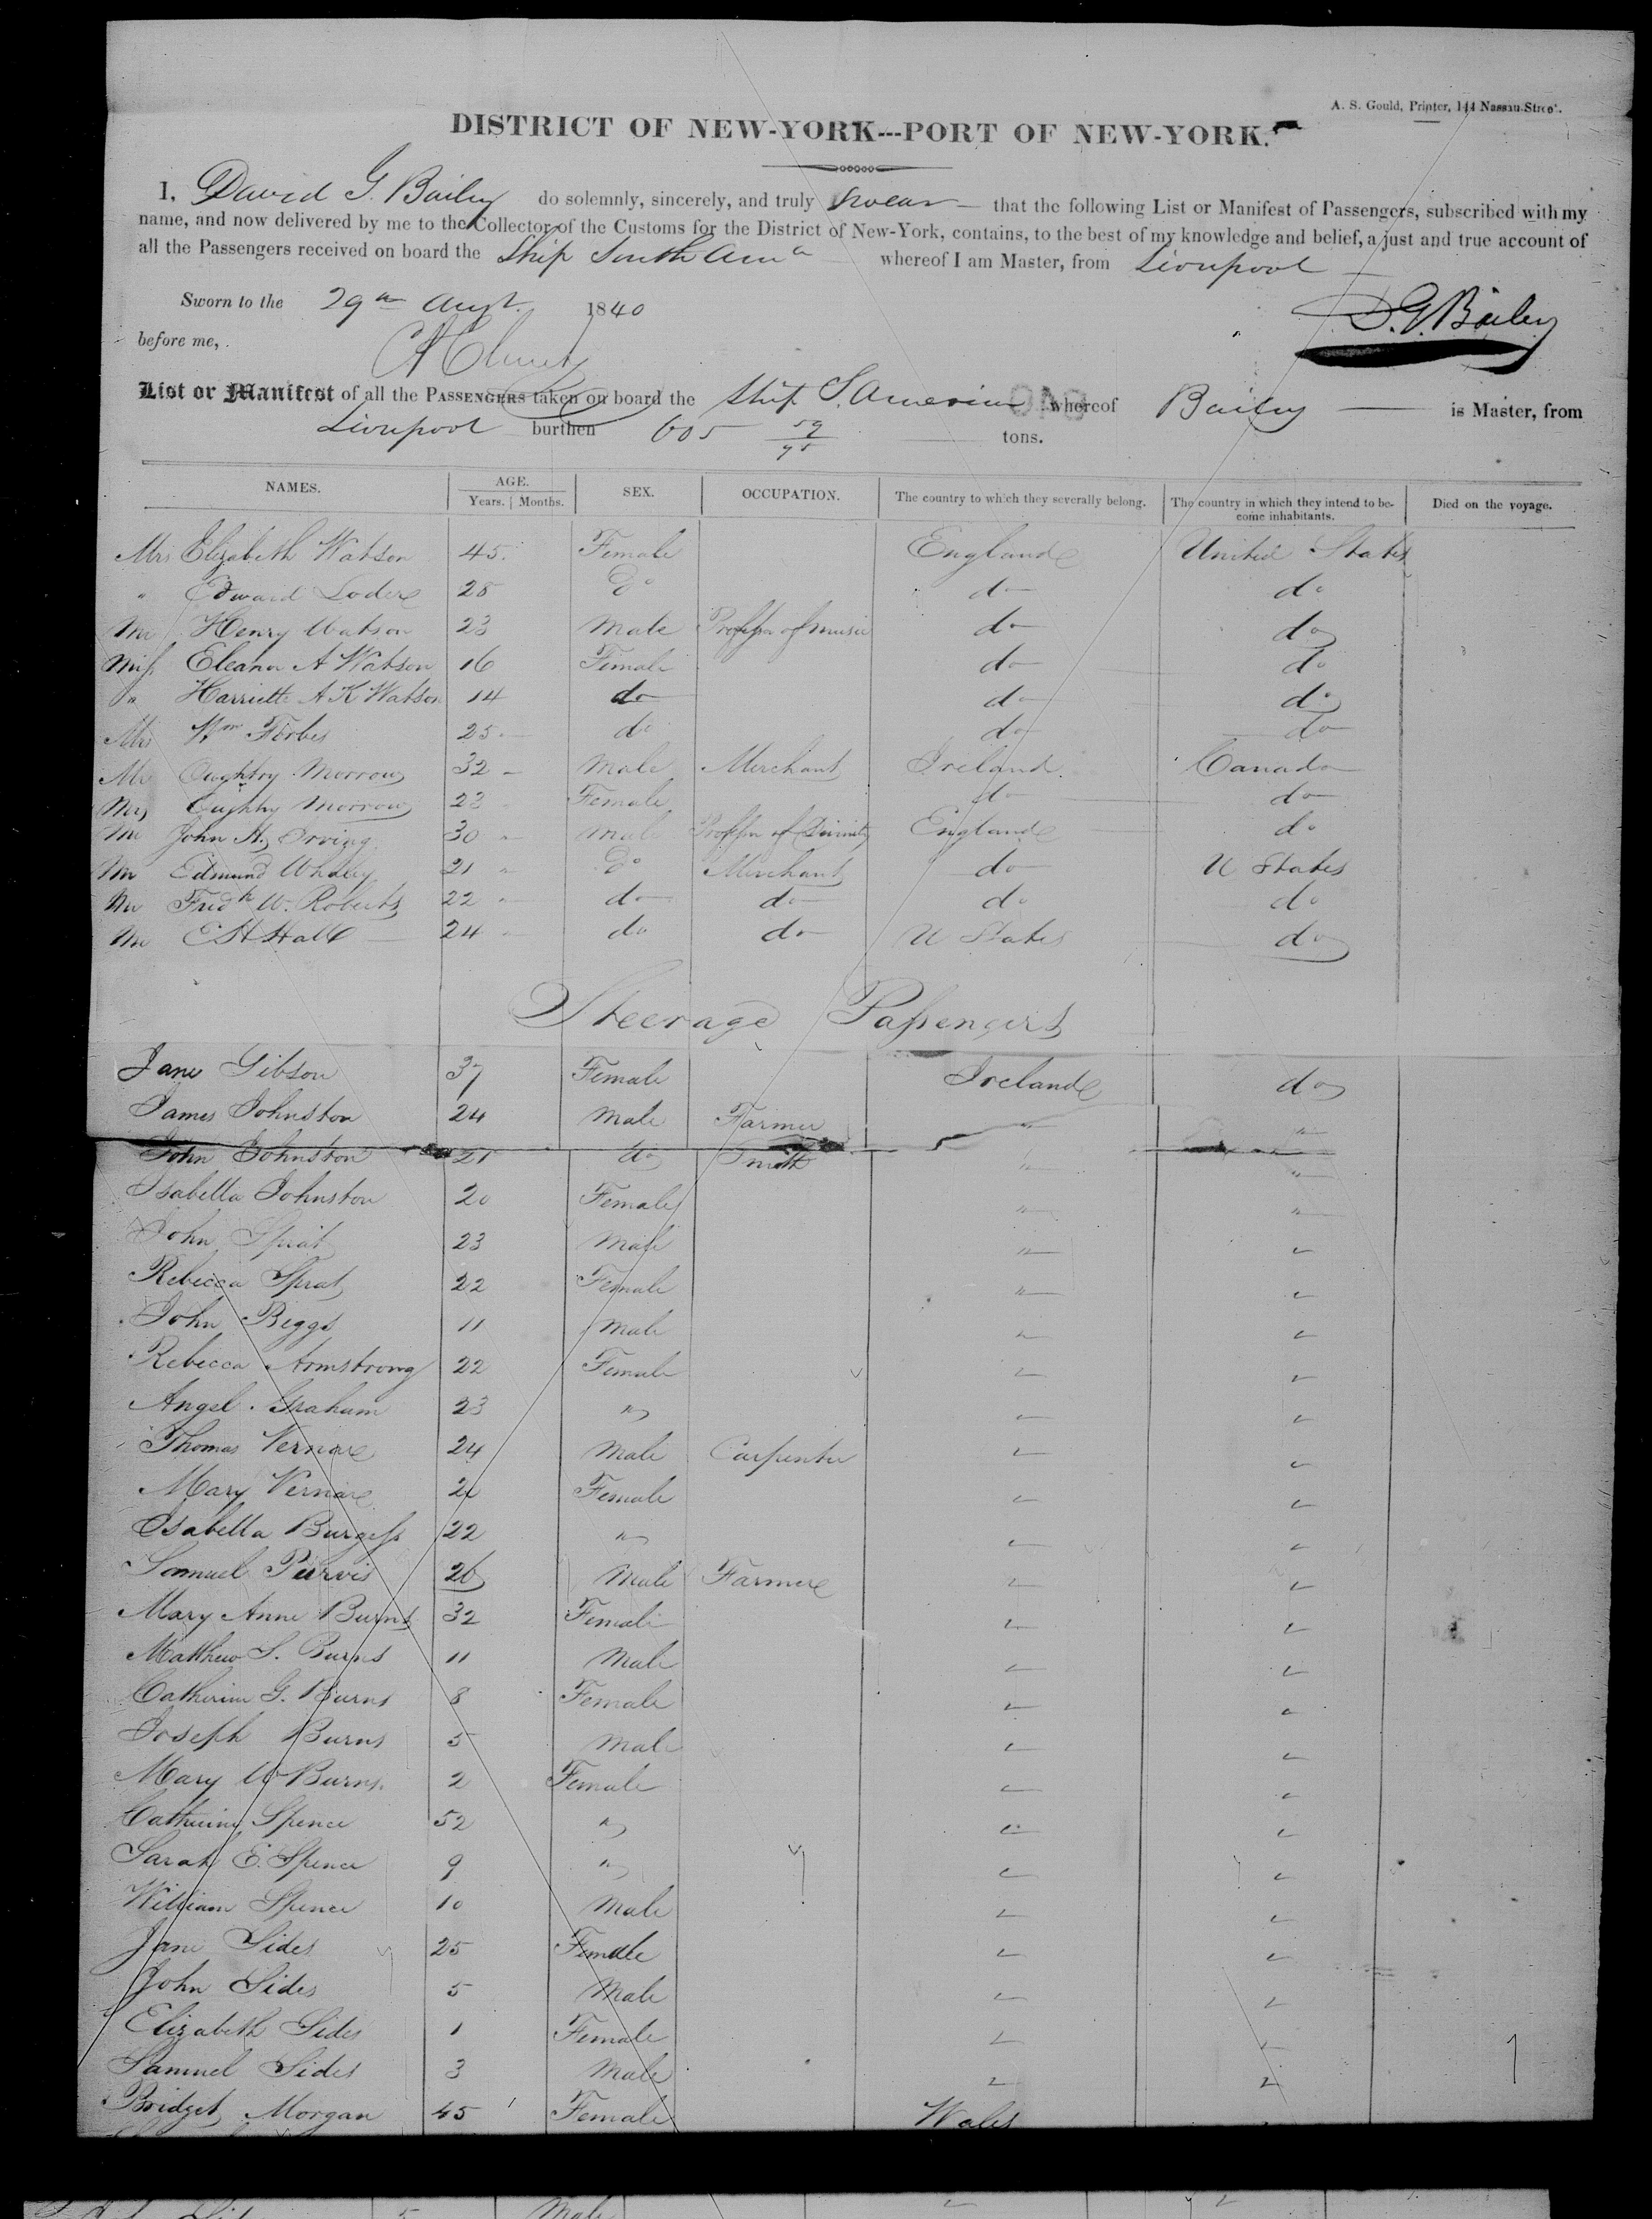 A. S. Gould, Printer, 144 Nassau Street.
DISTRICT OF NEW-YORK---PORT OF NEW-YORK.
I, David G. Bailey do solemnly, sincerely, and truly swear — that the following List or Manifest of Passengers, subscribed with my
name, and now delivered by me to the Collector of the Customs for the District of New-York, contains, to the best of my knowledge and belief, a just and true account of
all the Passengers received on board the Ship South Ama whereof I am Master, from Liverpool —
Sworn to the 29th Augt. 1840
D. G. Bailey
before me,
List or Manifest of all the PASSENGERS taken on board the Ship S. America whereof Bailey — is Master, from
Liverpool burthen 605 59/95 tons.
NAMES. AGE. Years. Months. SEX. OCCUPATION. The country to which they severally belong. The country in which they intend to become inhabitants. Died on the voyage.
Mrs Elizabeth Watson 45 Female England United States
" Edward Loder 28 Do do do
Mr Henry Watson 23 Male Professor of Music do do
Miss Eleanor A Watson 16 Female do do
" Harriette A K Watson 14 do do do
Mrs Wm Forbes 25 do do do
Mr Oughtry Morrow 32 Male Merchant Ireland Canada
Mrs Oughtry Morrow 23 Female do do
Mr John A. Irving 30 Male Professor of Divinity England do
Mr Edmund Whaley 21 Do Merchant do U States
Mr Fredk W. Roberts 22 do do do do
Mr E H Hall 24 do do U States do
Steerage Passengers
Jane Gibson 37 Female Ireland do
James Johnston 24 Male Farmer " "
John Johnston 21 do Smith " "
Isabella Johnston 20 Female " "
John Sprat 23 Male " "
Rebecca Sprat 22 Female " "
John Biggs 11 Male " "
Rebecca Armstrong 22 Female " "
Angel. Graham 23 " " "
Thomas Vernare 24 Male Carpenter " "
Mary Vernare Female " "
Isabella Burgess 22 " " "
Samuel Purvis 26 Male Farmer " "
Mary Anne Burns 32 Female " "
Matthew S. Burns 11 Male " "
Catherine G. Burns 8 Female " "
Joseph Burns 5 Male " "
Mary W Burns. 2 Female " "
Catherine Spence 52 " " "
Sarah E. Spence 9 " " "
William Spence 10 Male " "
Jane Sides 25 Female " "
John Sides 5 Male " "
Elizabeth Sides 1 Female " "
Samuel Sides 3 Male " "
Bridget Morgan 45 Female Wales "